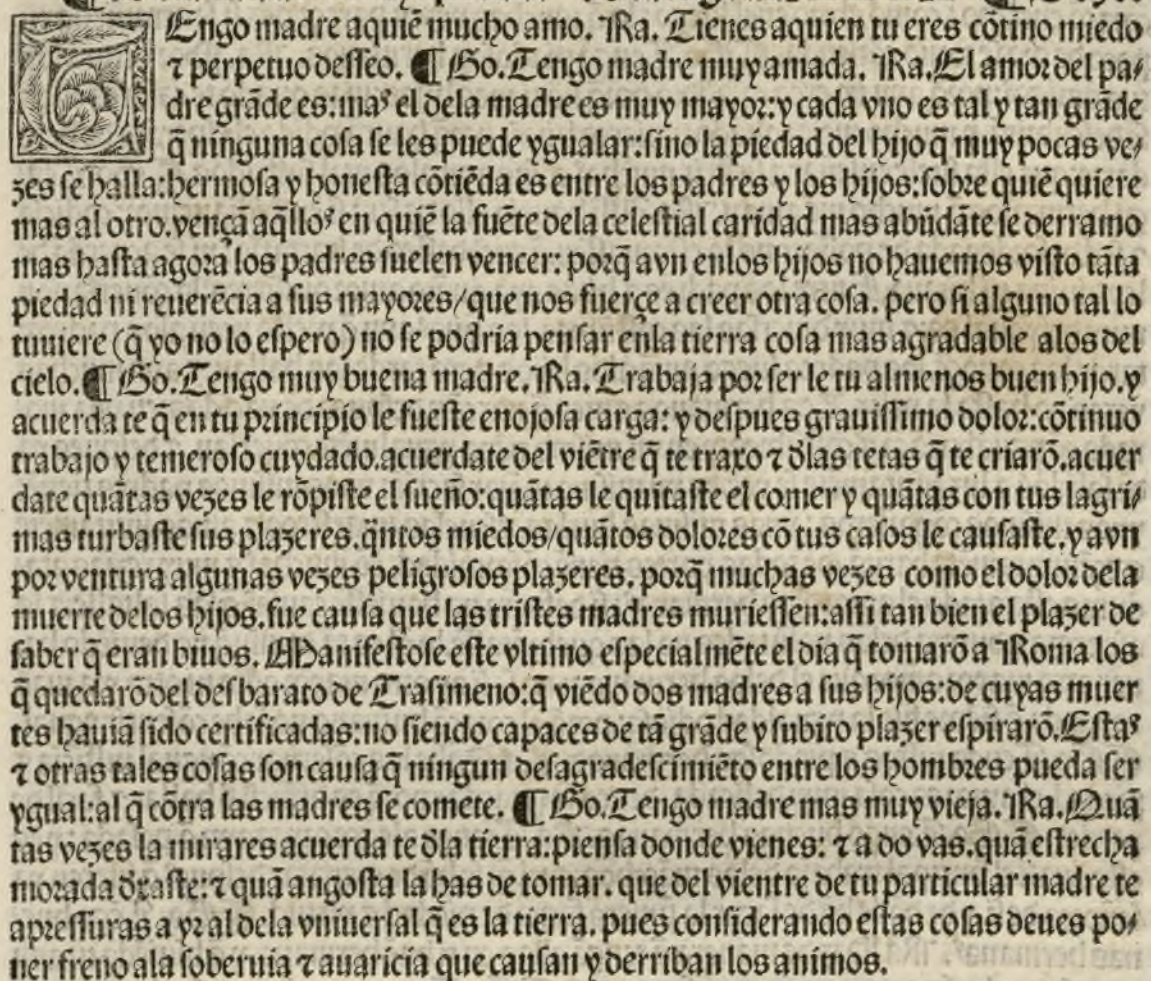 TEngo madre aquiẽ mucho amo. Ra. Tienes aquien tu eres cõtino miedo
⁊ perpetuo desseo. ¶ Go. Tengo madre muy amada. Ra. El amor del pa/
dre grãde es: mas el dela madre es muy mayor: y cada vno es tal y tan grãde
q̃ ninguna cosa se les puede ygualar: sino la piedad del hijo q̃ muy pocas ve/
zes se halla: hermosa y honesta cõtiẽda es entre los padres y los hijos: sobre quiẽ quiere
mas al otro. vençã aq̃llos en quiẽ la fuẽte dela celestial caridad mas abũdãte se derramo
mas hasta agora los padres suelen vencer: porq̃ avn enlos hijos no hauemos visto tãta
piedad ni reuerẽcia a sus mayores/que nos fuerçe a creer otra cosa. pero si alguno tal lo
tuuiere (q̃ yo no lo espero) no se podria pensar enla tierra cosa mas agradable alos del
cielo. ¶ Go. Tengo muy buena madre. Ra. Trabaja por ser le tu almenos buen hijo. y
acuerda te q̃ en tu principio le fueste enojosa carga: y despues grauissimo dolor: cõtinuo
trabajo y temeroso cuydado. acuerdate del viẽtre q̃ te traxo ⁊ d̃las tetas q̃ te criarõ. acuer
date quãtas vezes le rõpiste el sueño: quãtas le quitaste el comer y quãtas con tus lagri/
mas turbaste sus plazeres. q̃ntos miedos/quãtos dolores cõ tus casos le causaste. y avn
por ventura algunas vezes peligrosos plazeres. porq̃ muchas vezes como el dolor dela
muerte delos hijos. fue causa que las tristes madres muriessen: assi tan bien el plazer de
saber q̃ eran biuos. Manifestose este vltimo especialmẽte el dia q̃ tomarõ a Roma los
q̃ quedarõ del desbarato de Trasimeno: q̃ viẽdo dos madres a sus hijos: de cuyas muer
tes hauiã sido certificadas: no siendo capaces de tã grãde y subito plazer espirarõ. Estas
⁊ otras tales cosas son causa q̃ ningun desagradescimiẽto entre los hombres pueda ser
ygual: al q̃ cõtra las madres se comete. ¶ Go. Tengo madre mas muy vieja. Ra. Quã
tas vezes la mirares acuerda te d̃la tierra: piensa donde vienes: ⁊ a do vas. quã estrecha
morada d̃xaste: ⁊ quã angosta la has de tomar. que del vientre de tu particular madre te
apressuras a yr al dela vniuersal q̃ es la tierra. pues considerando estas cosas deues po/
ner freno ala soberuia ⁊ auaricia que causan y derriban los animos.